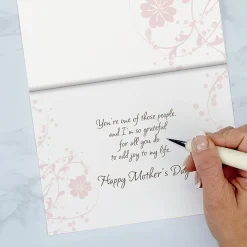 You're one of those people,
and I'm so grateful
for all you do
to add joy to my life.
Happy Mother's Day